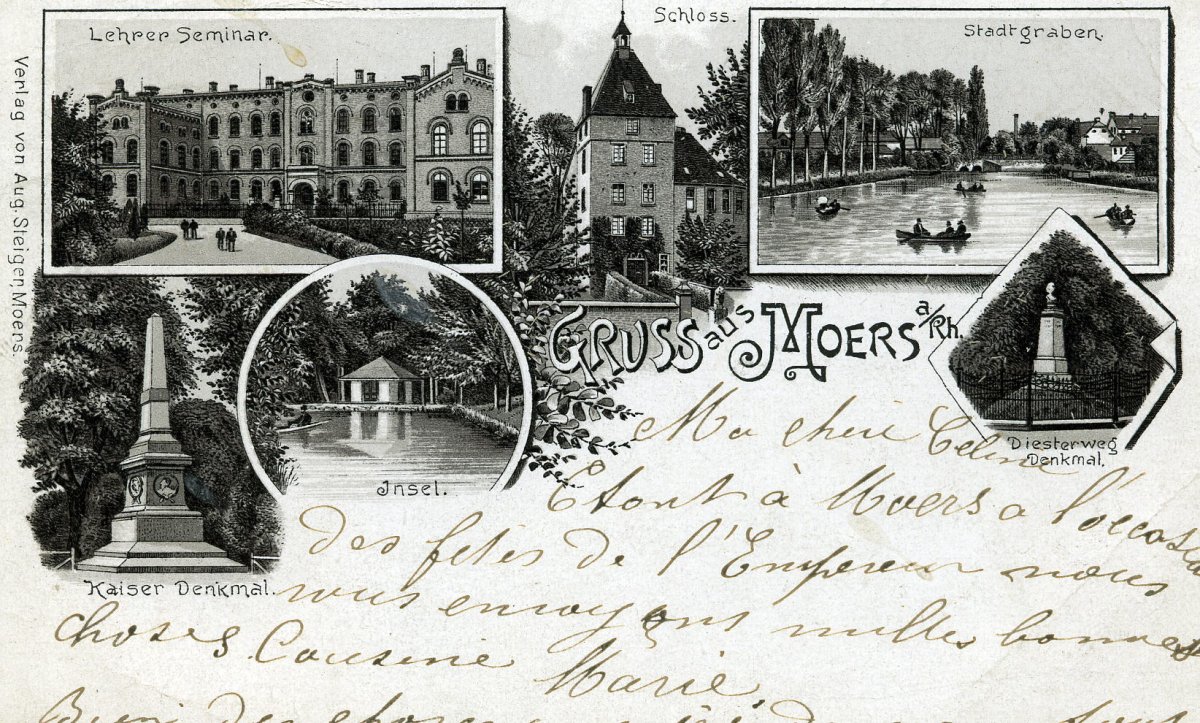 Lehrer Seminar.
Schloss.
Stadtgraben.
Verlag von Aug. Steiger, Moers.
GRUSS aus MOERS a/Rh.
Diesterweg
Denkmal.
Insel.
Kaiser Denkmal.
Ma cheri Celine
Etant à Moers a l'occasion
des fetes de l'Empereur nous
vous envoyons milles bonnes
choses. Cousine
Marie